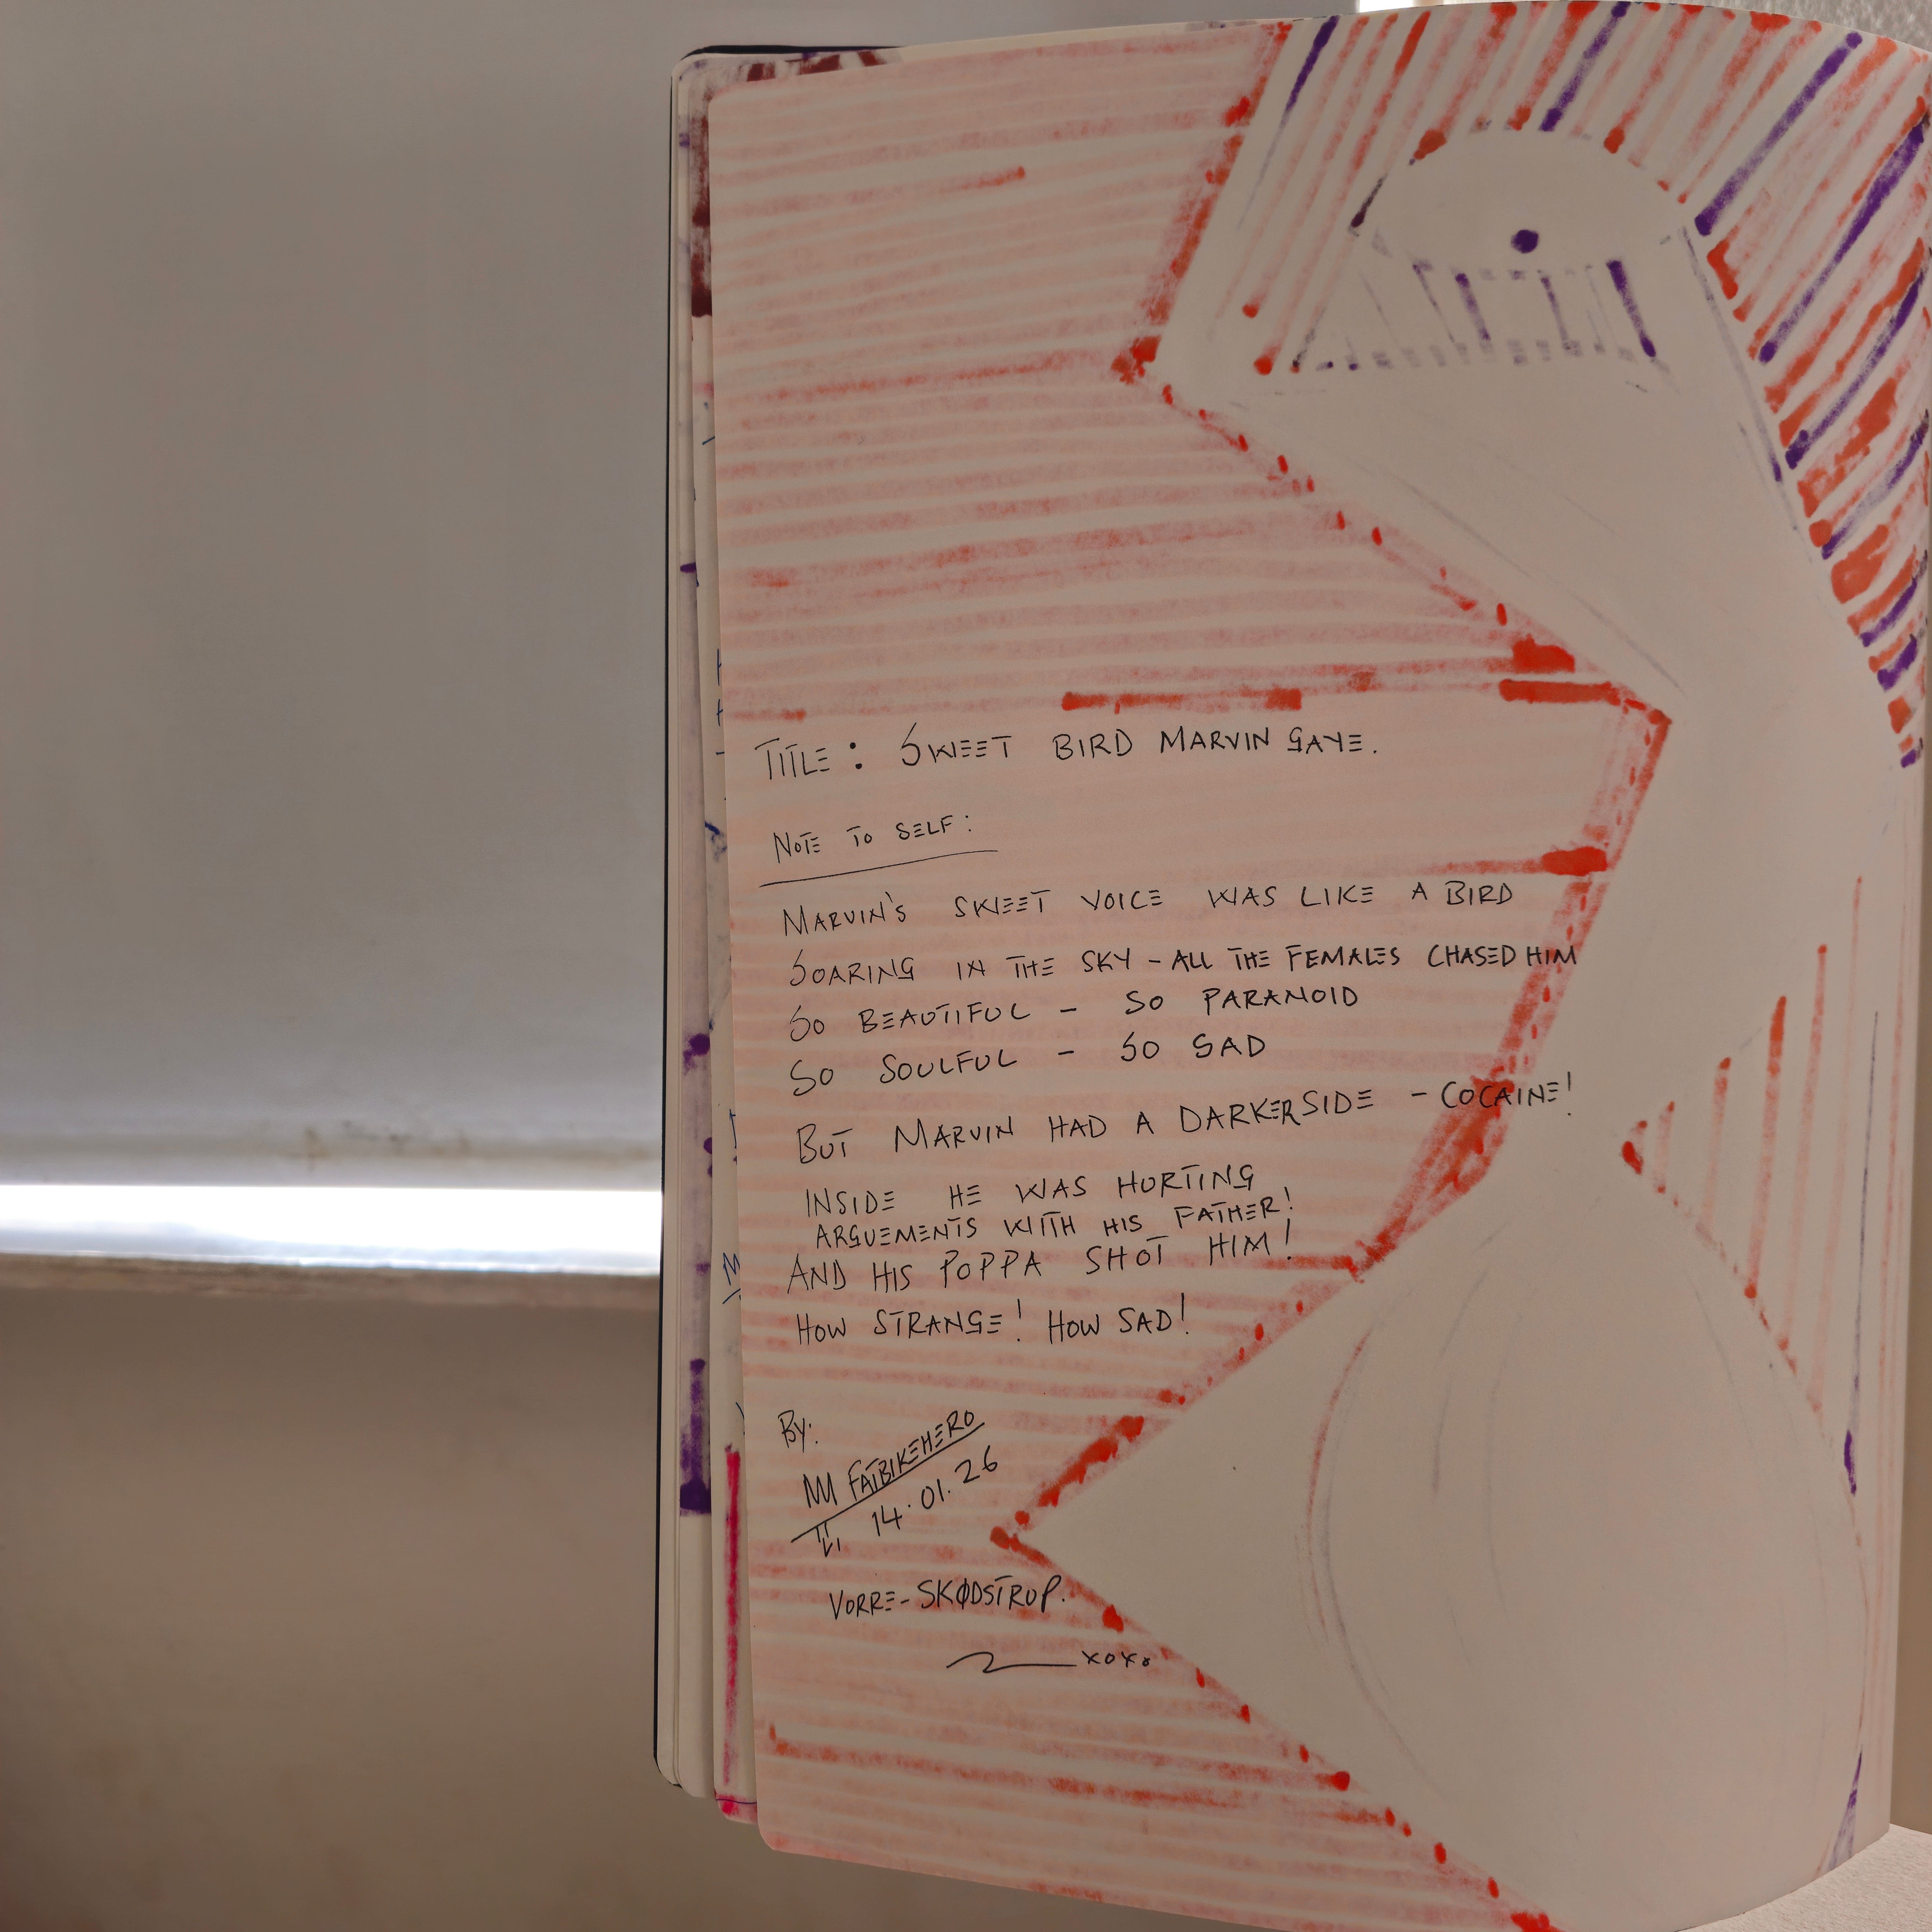 TITLE: SWEET BIRD MARVIN GAYE.
NOTE TO SELF:
MARVIN'S SWEET VOICE WAS LIKE A BIRD
SOARING IN THE SKY - ALL THE FEMALES CHASED HIM
SO BEAUTIFUL - SO PARANOID
SO SOULFUL - SO SAD
BUT MARVIN HAD A DARKERSIDE - COCAINE!
INSIDE HE WAS HURTING
ARGUEMENTS WITH HIS FATHER!
AND HIS POPPA SHOT HIM!
HOW STRANGE! HOW SAD!
BY:
FATBIKEHERO
14.01.26
VORRE-SKØDSTRUP.
xoxo